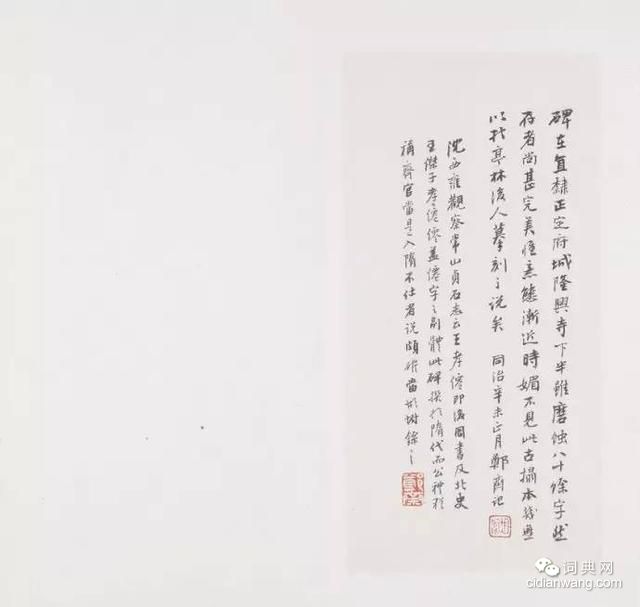 碑在直隸正定府城隆興寺下半雖磨蝕八十餘字然
存者尚甚完美惟意態漸近時媚不見此古搨本幾無
以折亭林後人摹刻之說矣 同治辛未正月鄭齋記
沈西雍觀察常山貞石志云王孝僊即後周書及北史
王傑子孝僊僊蓋僊字之別體此碑撰於隋代而公神
稱齊官當是入隋不仕者說頗確當坿錄之
词典网
cidianwang.com